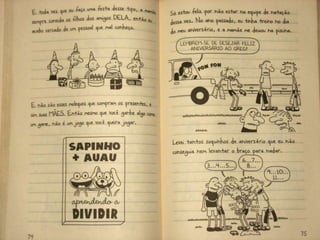 E toda vez que eu faço uma festa desse tipo, a mamãe
sempre convida os filhos dos amigos DELA, então eu
acabo cercado de um pessoal que mal conheço.
E não são esses moleques que compram os presentes, e
sim suas MÃES. Então mesmo que você ganhe algo como
um game, não é um jogo que você queira jogar.
SAPINHO
+ AUAU
aprendendo a
DIVIDIR
74
Só estou feliz por não estar na equipe de natação
desse ano. No ano passado, eu tinha treino no dia
do meu aniversário, e a mamãe me deixou na piscina.
LEMBREM-SE DE DESEJAR FELIZ
ANIVERSÁRIO AO GREG!
FON FON
Levei tantos soquinhos de aniversário que eu não
conseguia nem levantar o braço para nadar.
3...4...5...
6...7...
8...
9...10...
11...
75